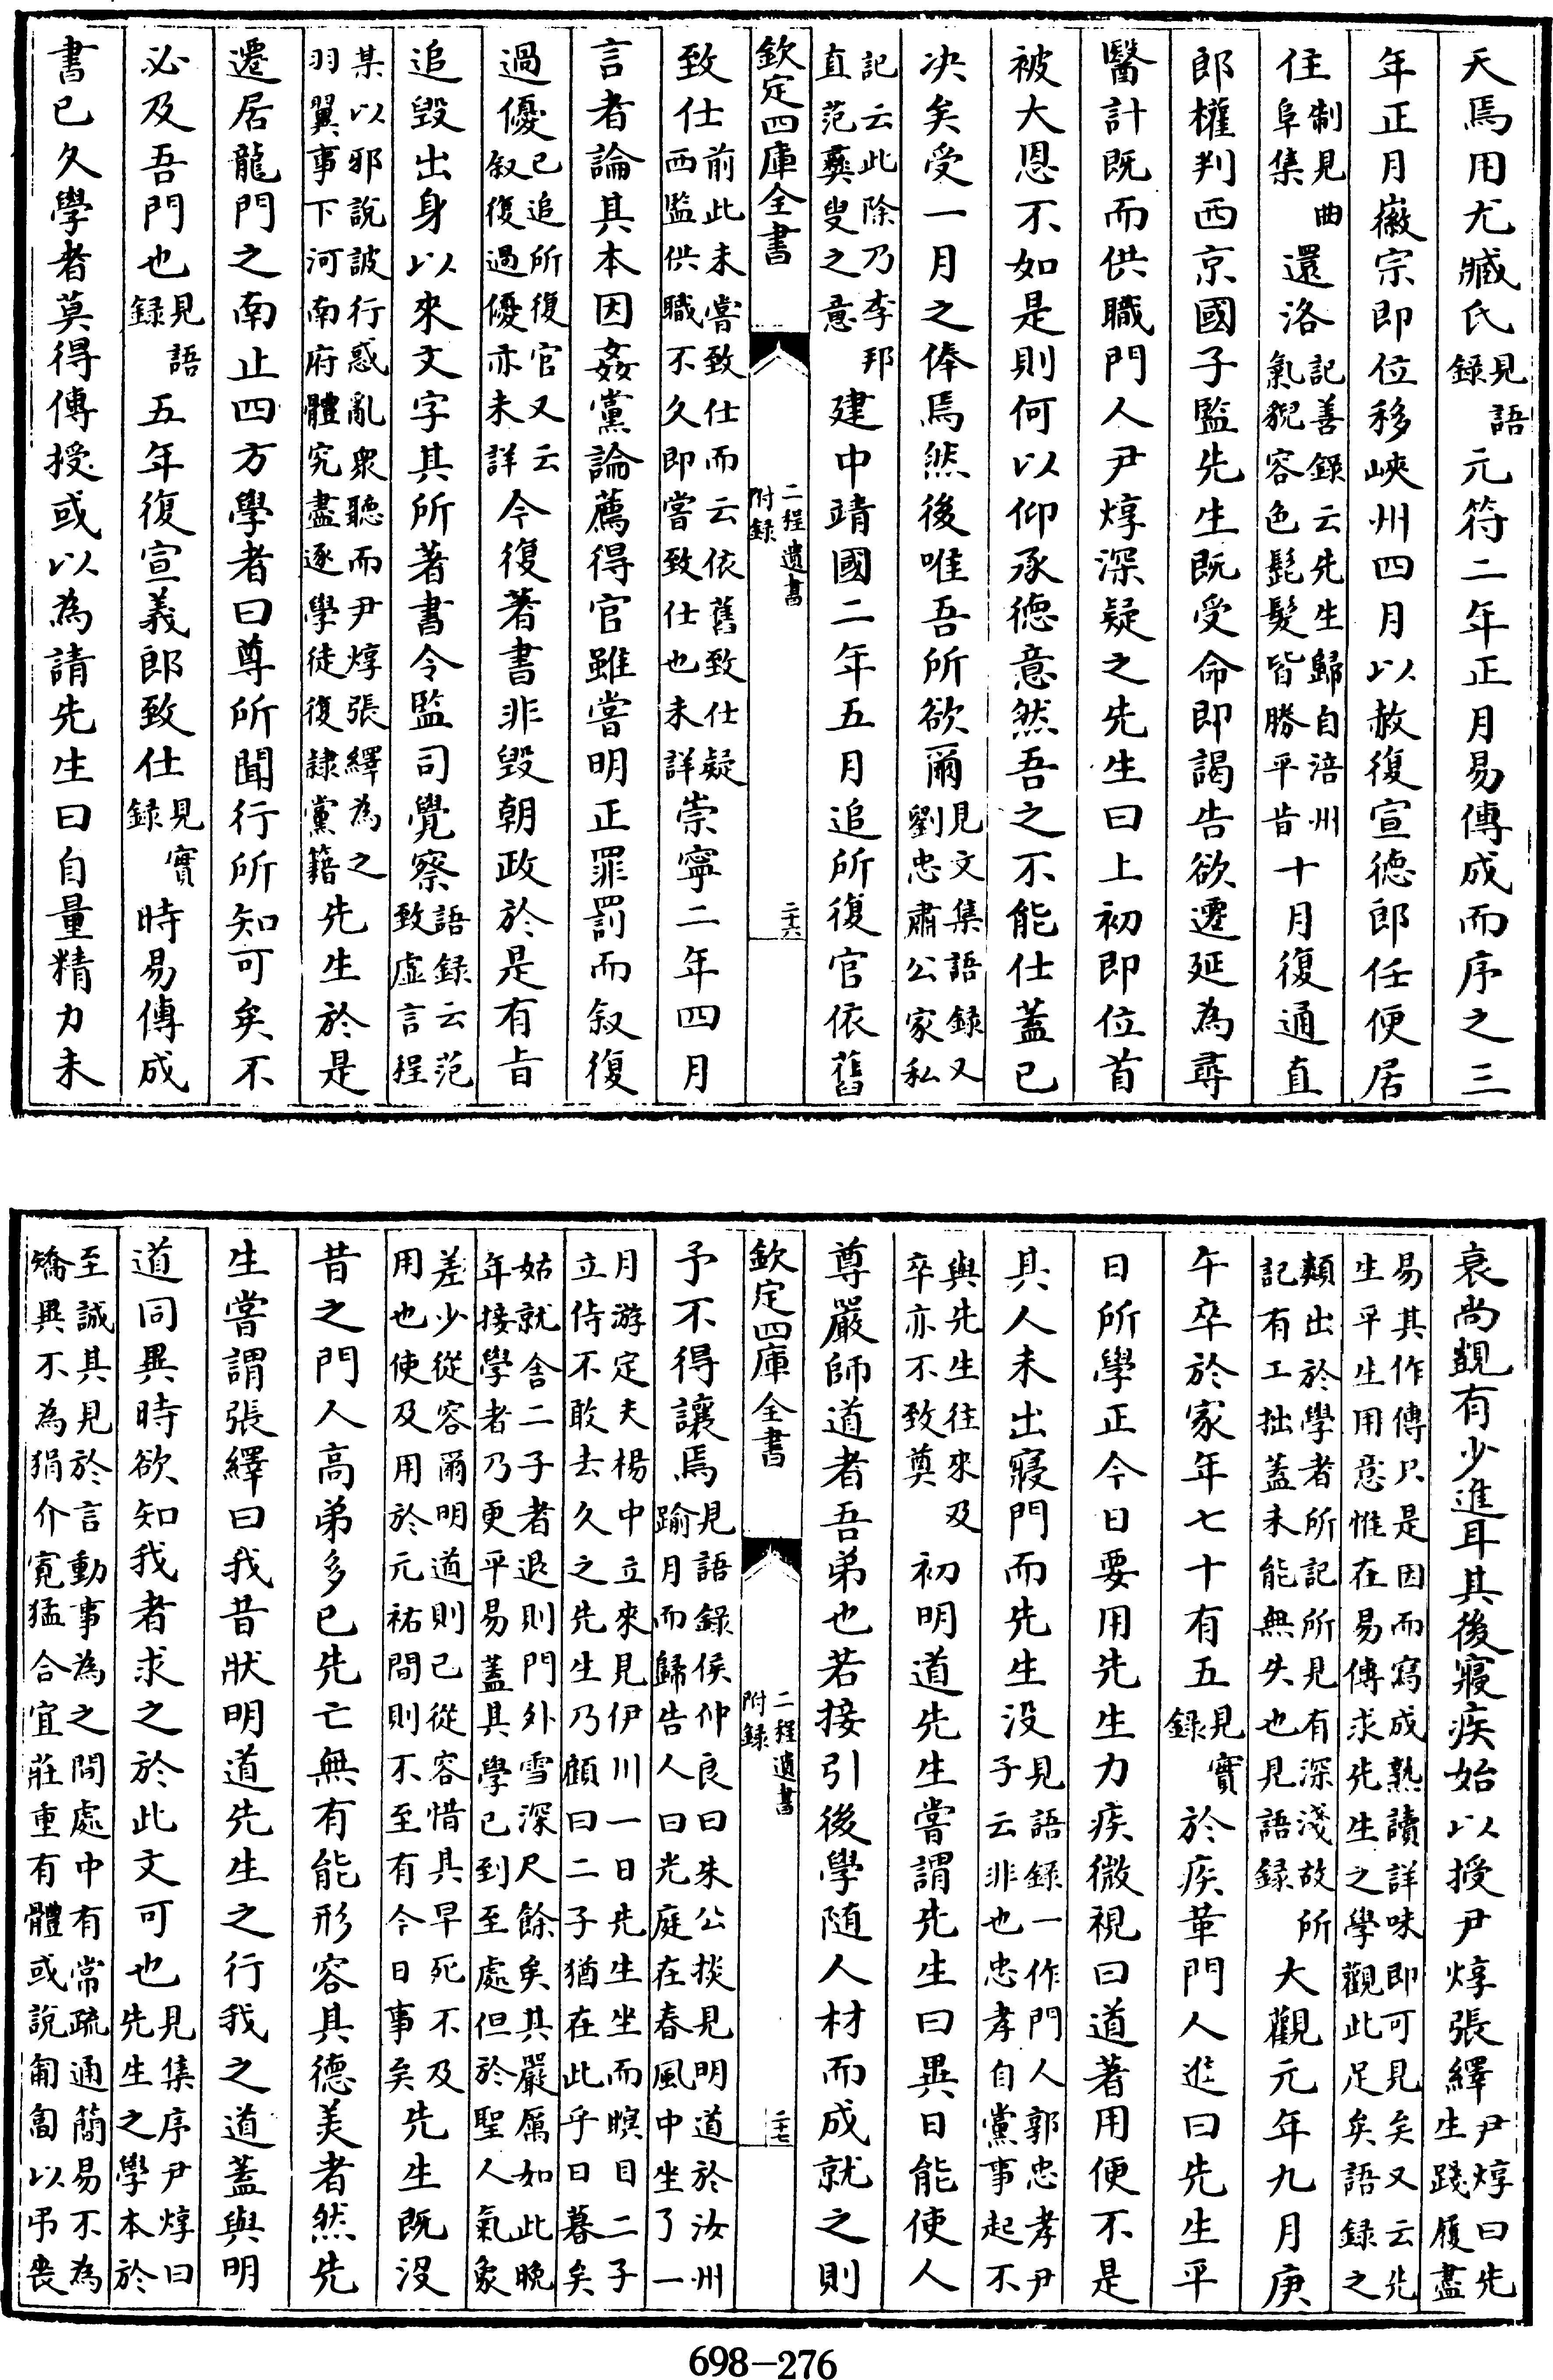 天焉用尤臧氏見語録元符二年正月易傳成而序之三
年正月徽宗即位移峽州四月以赦復宣徳郎任便居
住制見曲阜集還洛記善録云先生歸自涪州氣貌容色髭髮皆勝平昔十月復通直
郎權判西京國子監先生既受命即謁告欲遷延為尋
醫計既而供職門人尹焞深疑之先生曰上初即位首
被大恩不如是則何以仰承徳意然吾之不能仕蓋已
决矣受一月之俸焉然後唯吾所欲爾見文集語録又劉忠肅公家私
記云此除乃李邦直范彛叟之意建中靖國二年五月追所復官依舊
欽定四庫全書 二程遺書附録 二十六
致仕前此未嘗致仕而云依舊致仕疑西監供職不久即嘗致仕也未詳崇寧二年四月
言者論其本因姦黨論薦得官雖嘗明正罪罰而叙復
過優已追所復官又云叙復過優亦未詳今復著書非毀朝政於是有旨
追毀出身以來文字其所著書令監司覺察語録云范致虛言程
某以邪說詖行惑亂衆聽而尹焞張繹為之羽翼事下河南府體究盡逐學徒復隷黨籍先生於是
遷居龍門之南止四方學者曰尊所聞行所知可矣不
必及吾門也見語録五年復宣義郎致仕見實録時易傳成
書已久學者莫得傳授或以為請先生曰自量精力未
衰尚覬有少進耳其後寢疾始以授尹焞張繹尹焞曰先生踐履盡
易其作傳只是因而寫成熟讀詳味即可見矣又云先生平生用意惟在易傳求先生之學觀此足矣語録之
類出於學者所記所見有深淺故所記有工拙蓋未能無失也見語録大觀元年九月庚
午卒於家年七十有五見實録於疾革門人進曰先生平
日所學正今日要用先生力疾微視曰道著用便不是
其人未出寢門而先生没見語録一作門人郭忠孝尹子云非也忠孝自黨事起不
與先生往來及卒亦不致奠初明道先生嘗謂先生曰異日能使人
尊嚴師道者吾弟也若接引後學随人材而成就之則
欽定四庫全書 二程遺書附録 二十七
予不得讓焉見語録侯仲良曰朱公掞見明道於汝州踰月而歸告人曰光庭在春風中坐了一
月游定夫楊中立來見伊川一日先生坐而瞑目二子立侍不敢去久之先生乃顧曰二子猶在此乎日暮矣
姑就舍二子者退則門外雪深尺餘矣其嚴厲如此晚年接學者乃更平易蓋其學已到至處但於聖人氣象
差少從容爾明道則已從容惜其早死不及用也使及用於元祐間則不至有今日事矣先生既没
昔之門人高弟多已先亡無有能形容其德美者然先
生嘗謂張繹曰我昔狀明道先生之行我之道蓋與明
道同異時欲知我者求之於此文可也見集序尹焞曰先生之學本於
至誠其見於言動事為之間處中有常疏通簡易不為矯異不為狷介寛猛合宜莊重有體或說匍匐以弔喪
698-276